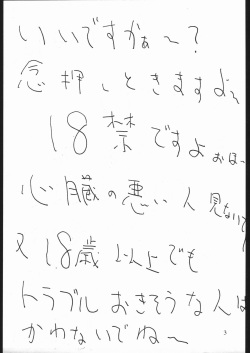 いいですかぁ〜？
念押しときますよぉ
18禁ですよ おほ〜
心臓の悪い人 見ないで〜
又18歳以上でも
トラブルおきそうな人は
かわないでね〜